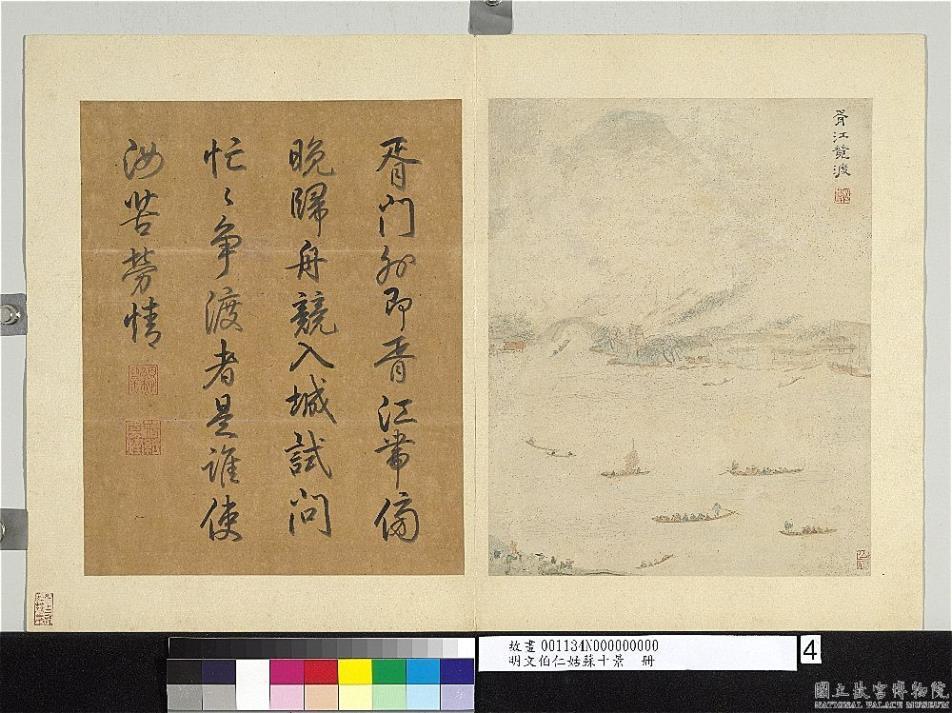 胥江競渡
胥門外即胥江帶傍
晚歸舟競入城試問
忙〻爭渡者是誰使
汝苦勞情
故畫 001134N000000000
明文伯仁姑蘇十景 冊
4
國立故宮博物院
NATIONAL PALACE MUSEUM